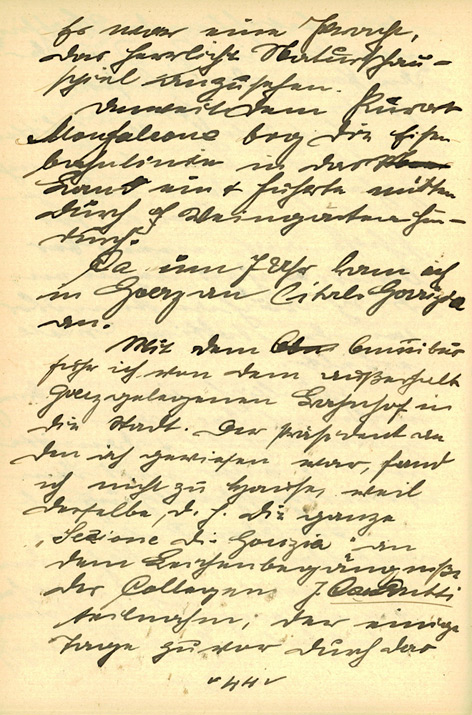 Es war eine Pracht,
das herrliche Naturschau-
spiel anzusehen.
Unweit dem Kurort
Monfalcone bog die Eisen
bahnlinie in das
Land ein & führte mitten
durch Weingärten hin-
durch.
Ca um 7 Uhr kam ich
in Goerz an (ital. Gorizia
an.
Mit dem Omnibus
fuhr ich von dem außerhalb
Goerz gelegenen Bahnhof in
die Stadt. Der Präsident an
den ich gewiesen war, fand
ich nicht zu Hause, weil
derselbe, d. h. die ganze
„Sezione di Gorizia“ an
dem Leichenbegängniße
des Collegen J.
teilnahm, der einige
Tage zuvor durch das
44